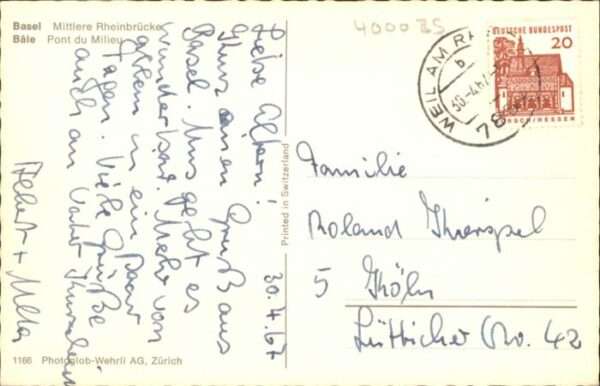 Basel Mittlere Rheinbrücke
Bâle Pont du Milieu
4000 BS
30.4.67
Liebe Eltern!
Kurz einen Gruß aus
Basel. Uns geht es
wunderbar. Mehr von
allem in ein paar
Tagen. Viele Grüße
auch an Vater
Printed in Switzerland
DEUTSCHE BUNDESPOST
20
LORSCH/HESSEN
WEIL AM RH
b
30.-4.67
78
Familie
Roland
5 Köln
Lütticher 42
1166 Photoglob-Wehrli AG, Zürich